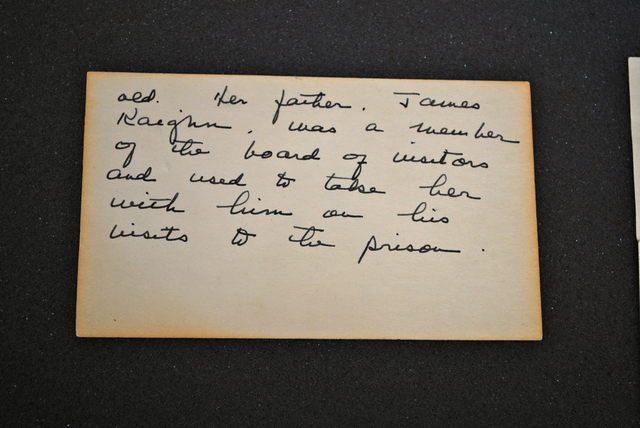 old. Her father, James
Kaighn, was a member
of the board of visitors
and used to take her
with him on his
visits to the prison.